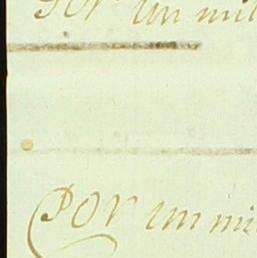 Por un mil
Por un mi